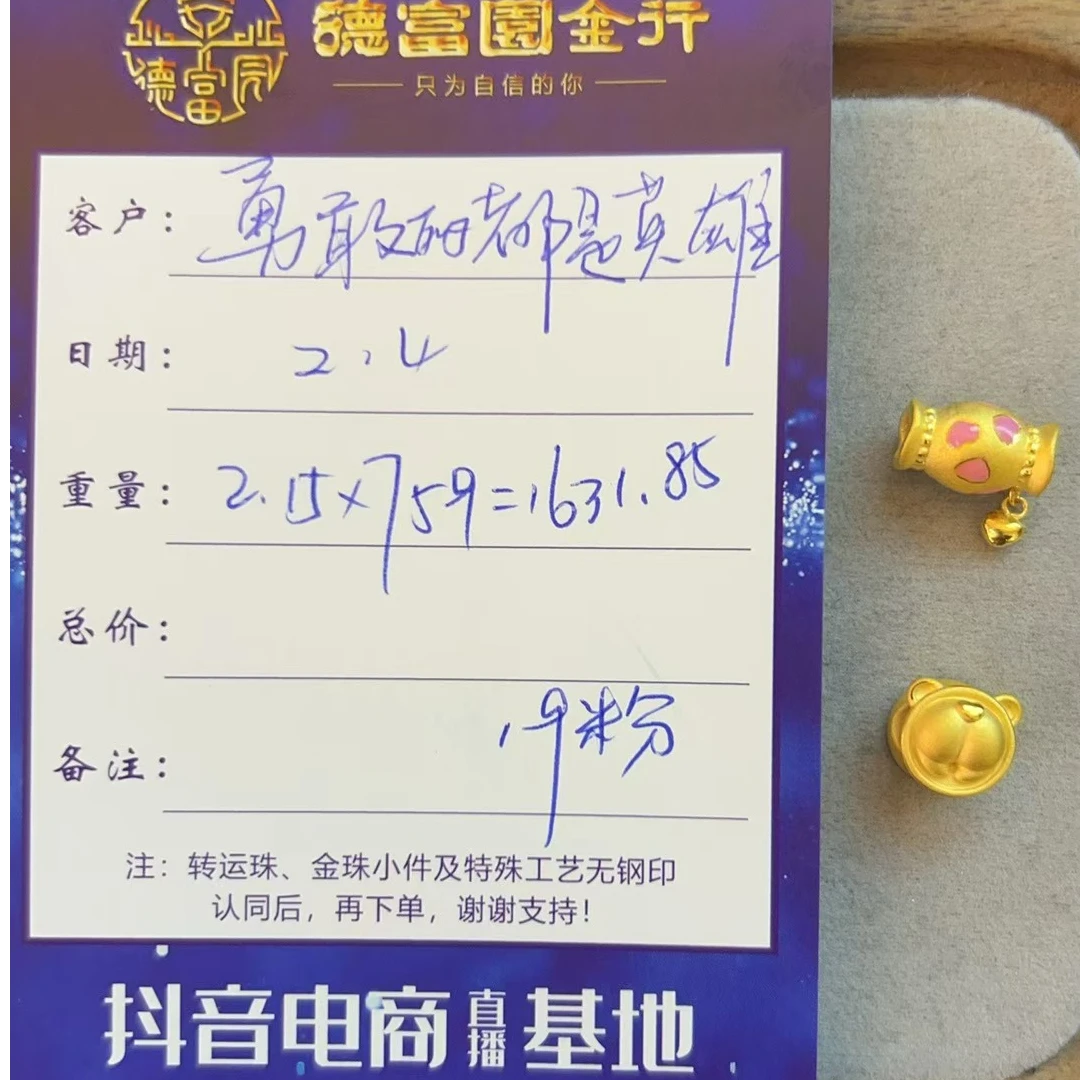 德富園金行
德富园
只为自信的你
客户：勇敢的都是英雄
日期：2.4
重量：2.15×759=1631.85
总价：
备注：19米粉
注：转运珠、金珠小件及特殊工艺无钢印
认同后，再下单，谢谢支持！
抖音电商直播基地